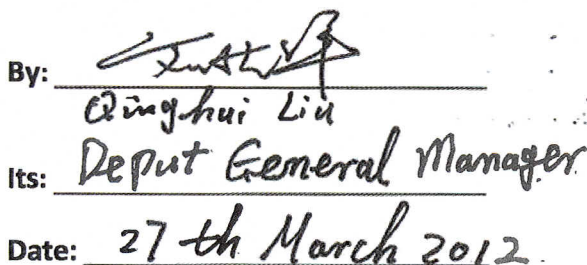 By:
Qinghui Liu
Its: Deput General Manager
Date: 27 th March 2012